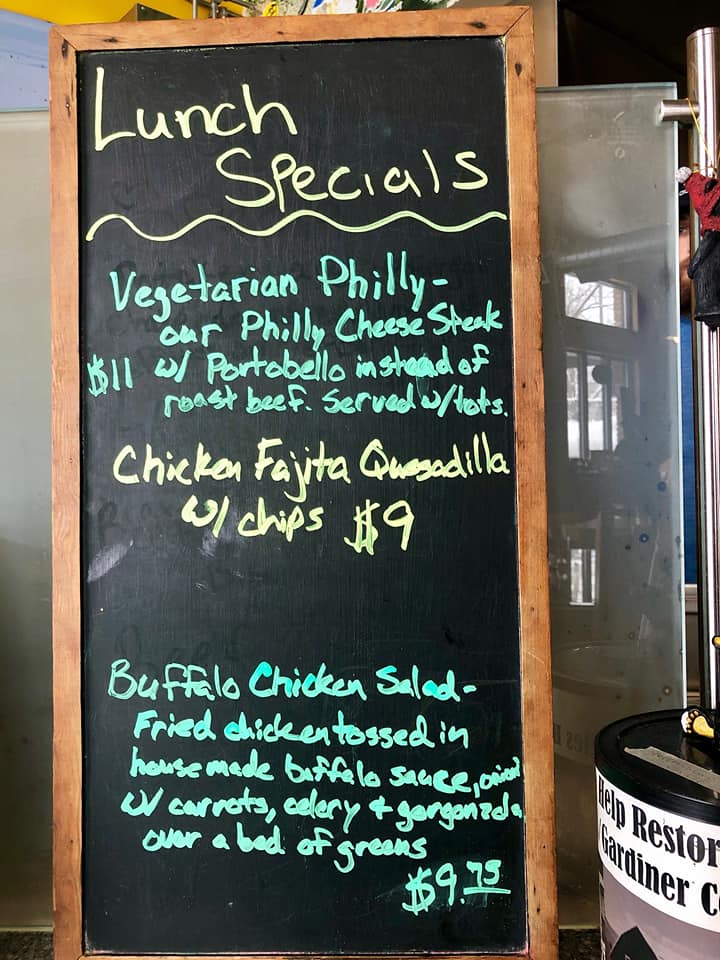 Lunch
Specials
Vegetarian Philly-
our Philly Cheese Steak
$11 w/ Portobello instead of
roast beef. Served w/tots.
Chicken Fajita Quesadilla
w/ chips $9
Buffalo Chicken Salad-
Fried chicken tossed in
house made buffalo sauce,
w/ carrots, celery + gorgonzola
over a bed of greens
$9.75
Help Restor
Gardiner C